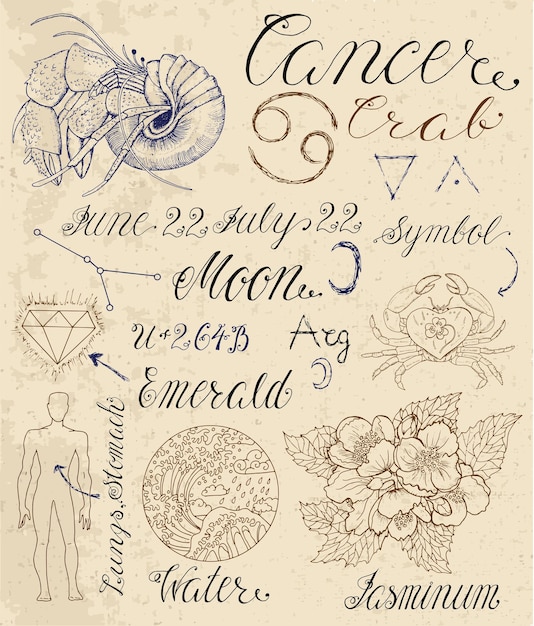 Cancer
Crab
June 22 July 22
Symbol
Moon
U+264B
Arg
Emerald
Lungs, Stomach
Water
Jasminum